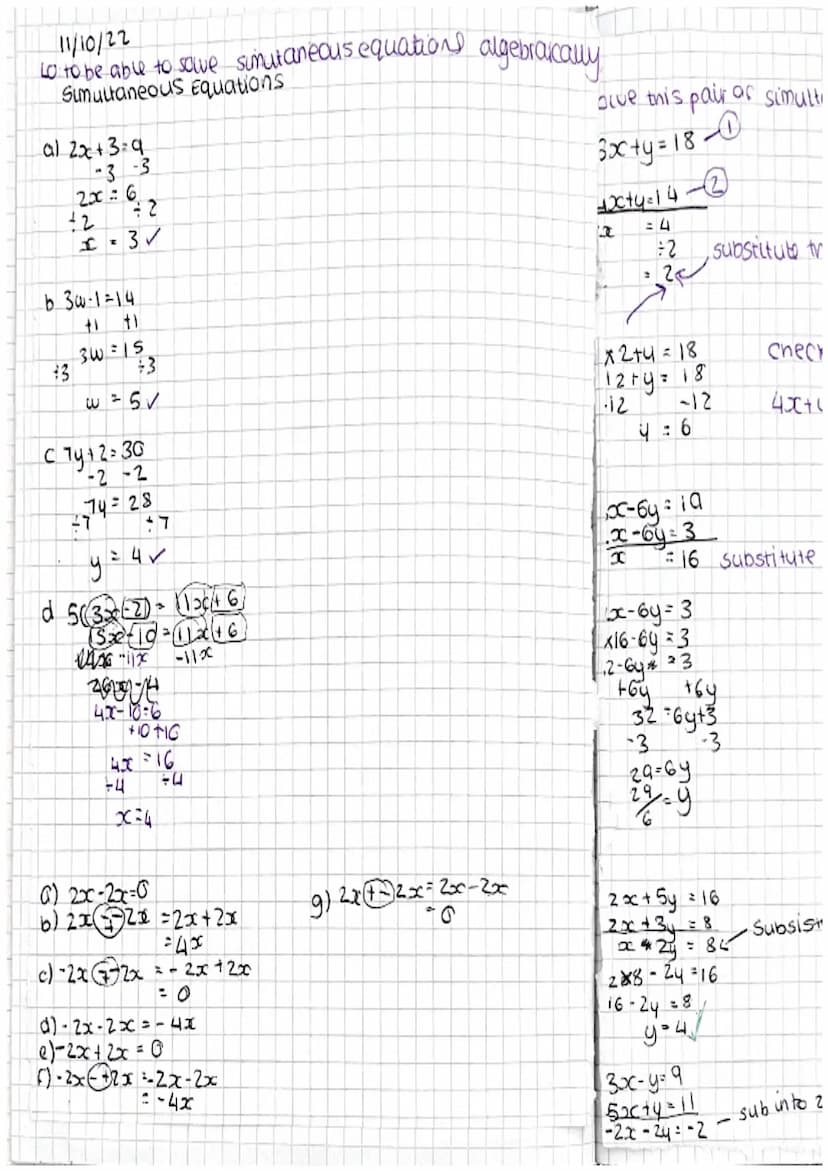 11/10/22
LO to be able to solve simultaneous equations algebraically
Simultaneous Equations
a) 2x+3=9
-3 -3
2x = 6
÷2 ÷2
x = 3 ✓
b 3w-1=14
+1 +1
3w = 15
÷3 ÷3
w = 5 ✓
c 7y+2=30
-2 -2
7y = 28
÷7 ÷7
y = 4 ✓
d 5(3x-2) = 11x+6
15x-10=11x+6
-11x -11x
4x-10=6
+10 +10
4x = 16
÷4 ÷4
x=4
a) 2x-2x=0
b) 2x--2x = 2x+2x
= 4x
c) -2x--2x = -2x+2x
= 0
d) -2x-2x = -4x
e) -2x+2x = 0
f) -2x-+2x = -2x-2x
= -4x
g) 2x+-2x = 2x-2x
= 0
this pair of
3x+y=18 ①
x+y=14 ②
x = 4
÷2
= 2 substitute
×2+y = 18
12+y = 18
-12 -12
y = 6
4x+
x-6y=19
x-6y=3
x = 16 substitute
x-6y=3
×16-6y=3
2-6y = 3
+6y +6y
32=6y+3
-3 -3
29=6y
29/6=y
2x+5y=16
2x+3y=8
x 2y = 8
2×8-2y=16
16-2y=8
y=4 ✓
3x-y=9
5x+y=11
-2x-2y=-2 sub into 2